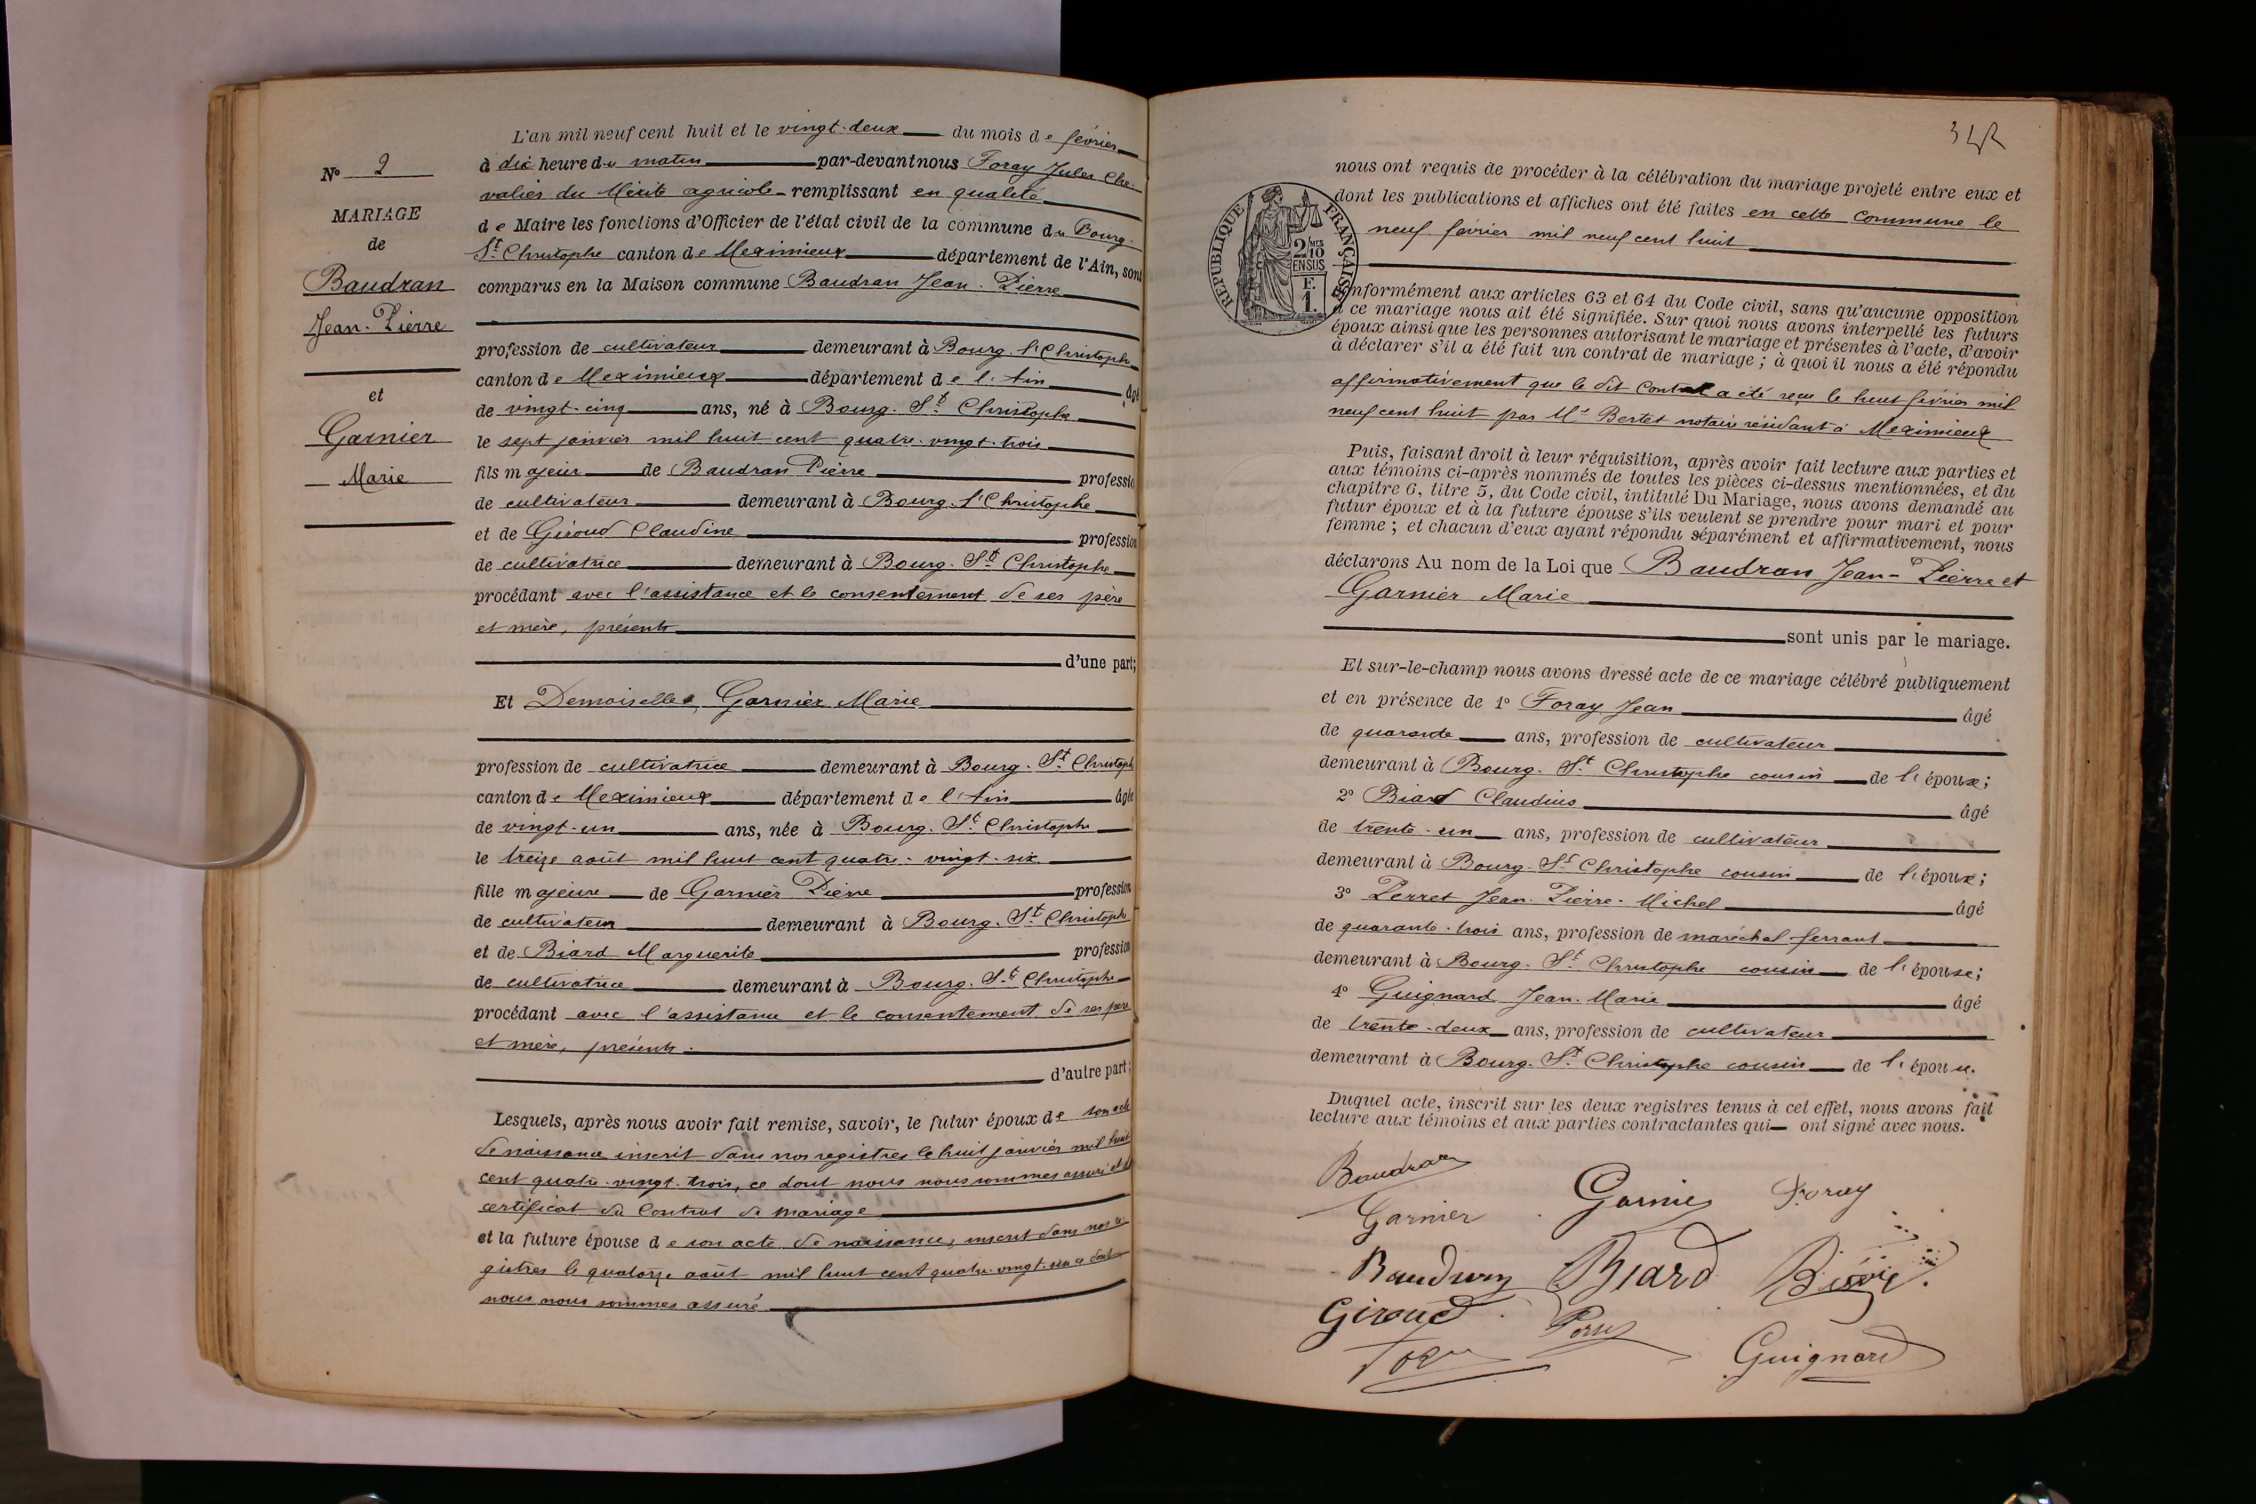 N° 2
MARIAGE
de
Baudran
Jean-Pierre
et
Garnier
Marie
L'an mil neuf cent huit et le vingt-deux du mois de février
à dix heure du matin par-devant nous Foray Jules Che-
valier du Mérite agricole remplissant en qualité
de Maire les fonctions d'Officier de l'état civil de la commune du Bourg-
St Christophe canton de Meximieux département de l'Ain, sont
comparus en la Maison commune Baudran Jean-Pierre
profession de cultivateur demeurant à Bourg-St Christophe
canton de Meximieux département de l'Ain âgé
de vingt-cinq ans, né à Bourg-St Christophe
le sept janvier mil huit cent quatre-vingt-trois
fils majeur de Baudran Pierre professio
de cultivateur demeurant à Bourg-St Christophe
et de Giroud Claudine profession
de cultivatrice demeurant à Bourg-St Christophe
procédant avec l'assistance et le consentement de ses père
et mère, présents
d'une part;
Et Demoiselle Garnier Marie
profession de cultivatrice demeurant à Bourg-St Christophe
canton de Meximieux département de l'Ain âgée
de vingt-un ans, née à Bourg-St Christophe
le treize août mil huit cent quatre-vingt-six
fille majeure de Garnier Pierre profession
de cultivateur demeurant à Bourg-St Christophe
et de Biard Marguerite profession
de cultivatrice demeurant à Bourg-St Christophe
procédant avec l'assistance et le consentement de ses père
et mère, présents.
d'autre part;
Lesquels, après nous avoir fait remise, savoir, le futur époux de son acte
de naissance inscrit dans nos registres le huit janvier mil huit
cent quatre-vingt-trois, ce dont nous nous sommes assuré et du
certificat du Contrat de mariage
et la future épouse de son acte de naissance, inscrit dans nos re
gistres le quatorze août mil huit cent quatre-vingt-six ce dont
nous nous sommes assuré
RÉPUBLIQUE FRANÇAISE
2/10
EN SUS
F.
1.
nous ont requis de procéder à la célébration du mariage projeté entre eux et
dont les publications et affiches ont été faites en cette commune le
neuf février mil neuf cent huit
conformément aux articles 63 et 64 du Code civil, sans qu'aucune opposition
à ce mariage nous ait été signifiée. Sur quoi nous avons interpellé les futurs
époux ainsi que les personnes autorisant le mariage et présentes à l'acte, d'avoir
à déclarer s'il a été fait un contrat de mariage ; à quoi il nous a été répondu
affirmativement que le dit Contrat a été reçu le huit février mil
neuf cent huit par Me Bertet notaire résidant à Meximieux
Puis, faisant droit à leur réquisition, après avoir fait lecture aux parties et
aux témoins ci-après nommés de toutes les pièces ci-dessus mentionnées, et du
chapitre 6, titre 5, du Code civil, intitulé Du Mariage, nous avons demandé au
futur époux et à la future épouse s'ils veulent se prendre pour mari et pour
femme ; et chacun d'eux ayant répondu séparément et affirmativement, nous
déclarons Au nom de la Loi que Baudran Jean-Pierre et
Garnier Marie
sont unis par le mariage.
Et sur-le-champ nous avons dressé acte de ce mariage célébré publiquement
et en présence de 1° Foray Jean âgé
de quarante ans, profession de cultivateur
demeurant à Bourg-St Christophe cousin de l'époux;
2° Biard Claudius âgé
de trente-un ans, profession de cultivateur
demeurant à Bourg-St Christophe cousin de l'époux;
3° Perret Jean-Pierre-Michel âgé
de quarante-trois ans, profession de maréchal-ferrant
demeurant à Bourg-St Christophe cousin de l'épouse;
4° Guignard Jean-Marie âgé
de trente-deux ans, profession de cultivateur
demeurant à Bourg-St Christophe cousin de l'épouse.
Duquel acte, inscrit sur les deux registres tenus à cet effet, nous avons fait
lecture aux témoins et aux parties contractantes qui ont signé avec nous.
Baudran
Garnier Garnier Foray
Baudran Biard
Giroud Guignard